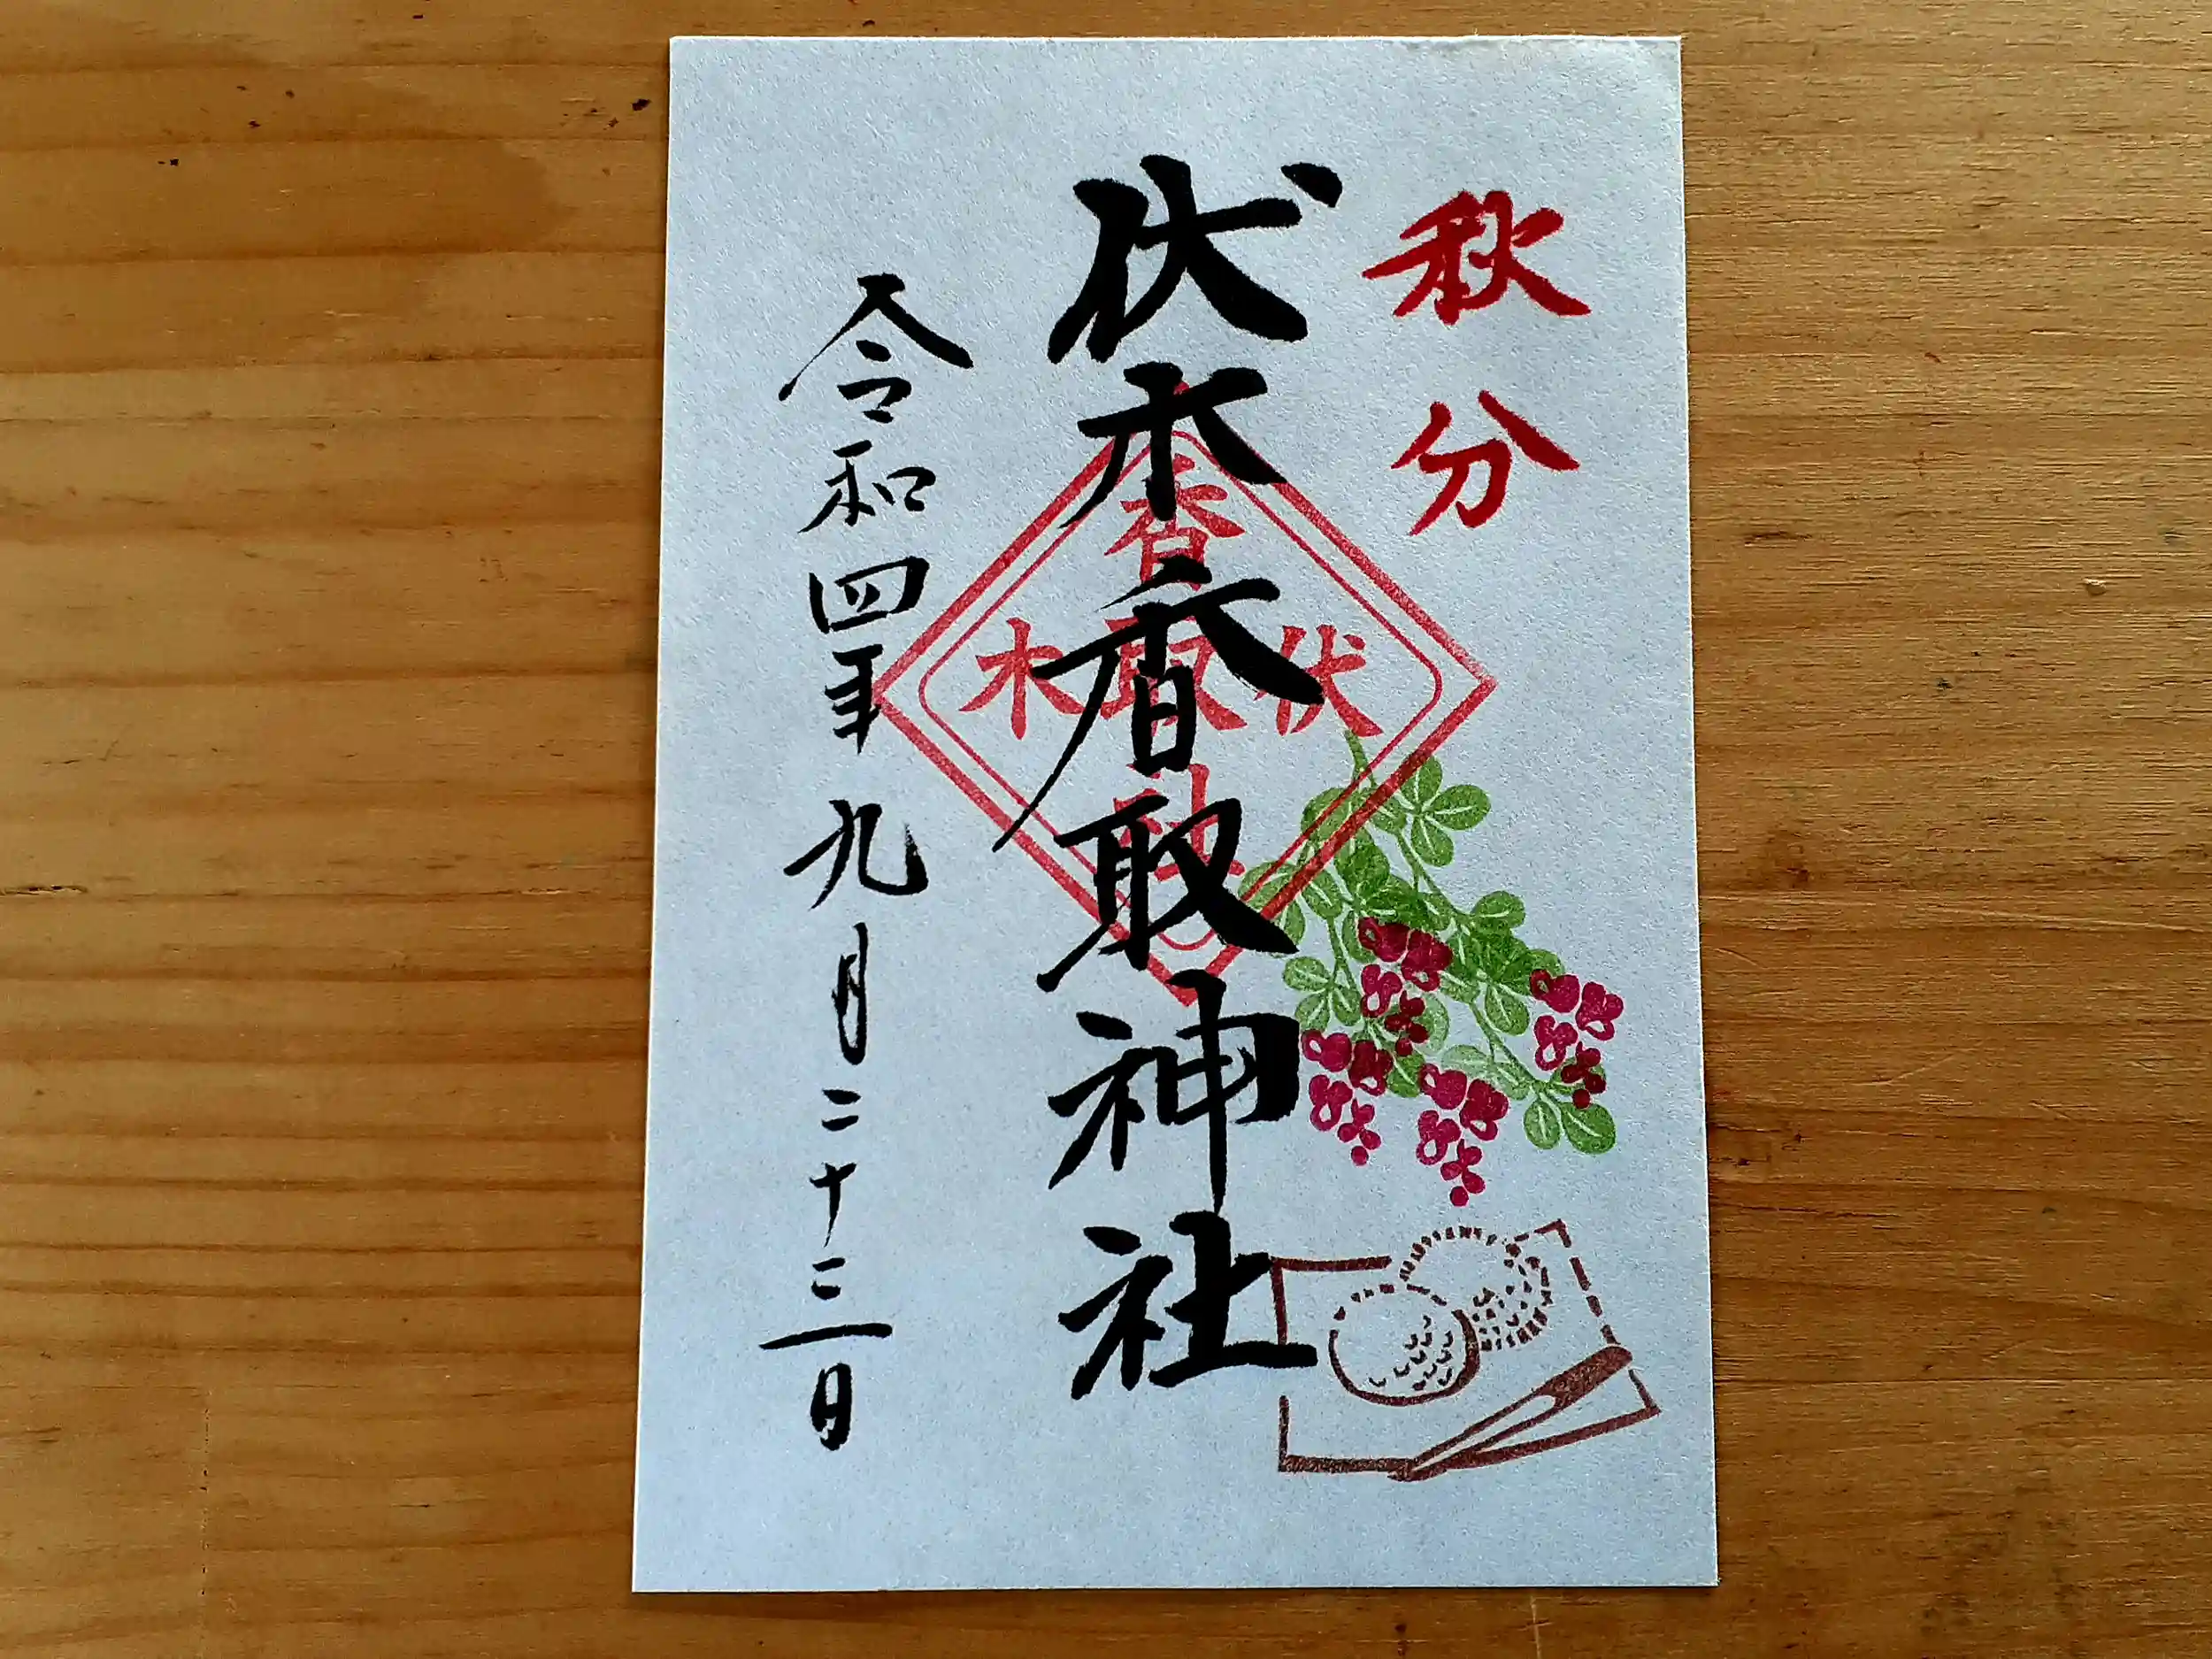 秋分
伏木香取神社
香
伏取木
社
令和四年九月二十三日